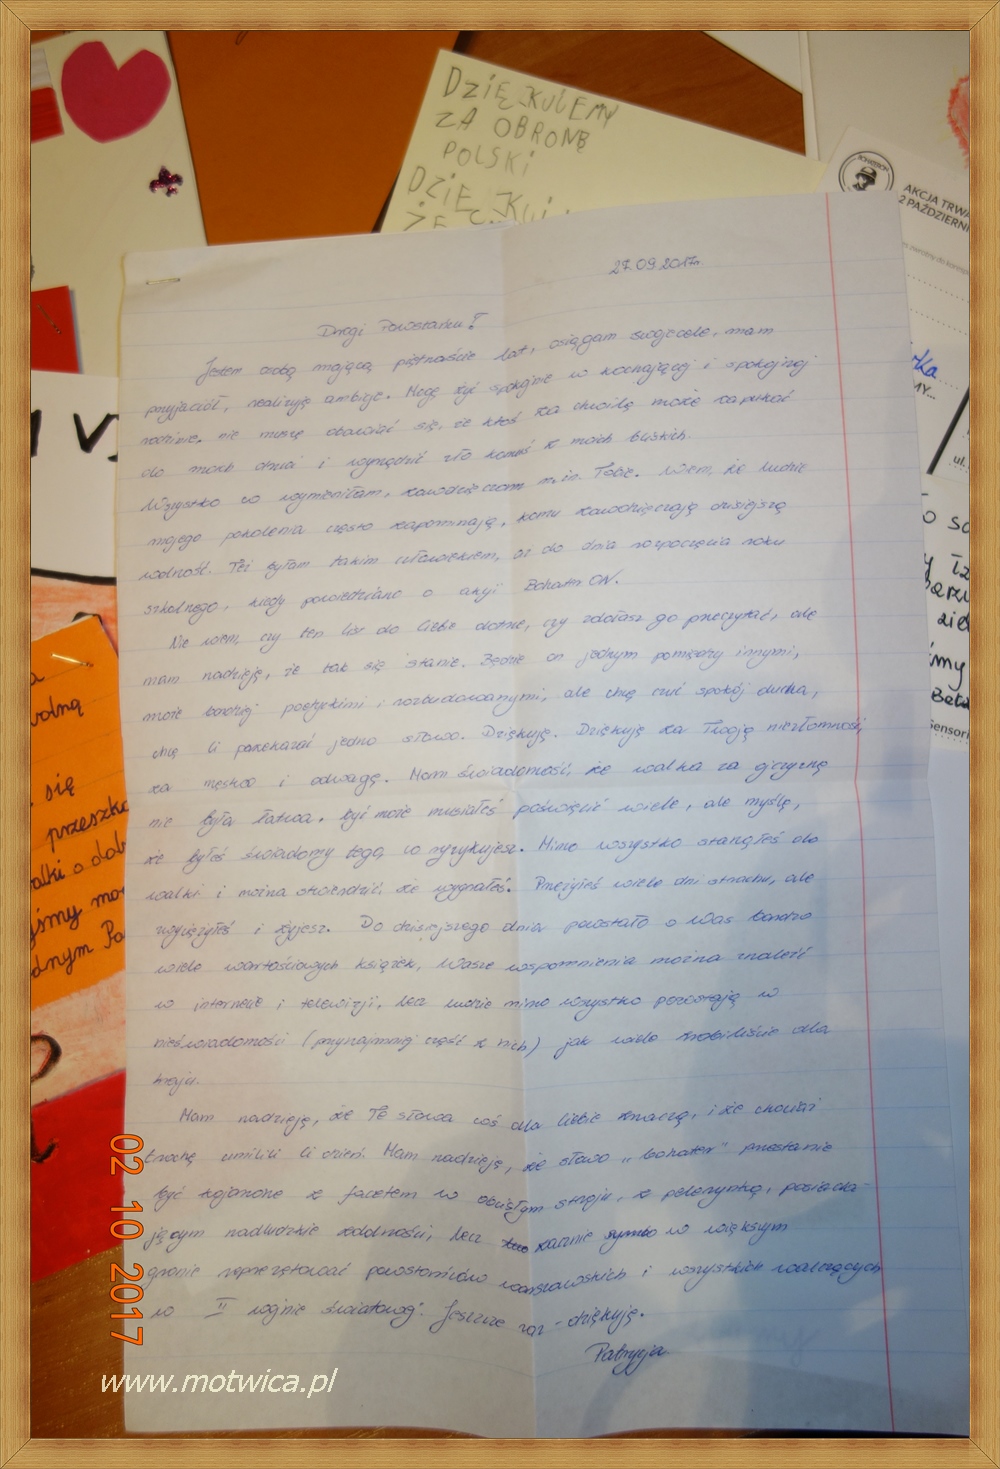 DZIĘKUJEMY
ZA OBRONĘ
POLSKI
DZIĘKUJ
ŻE
AKCJA TRWA
2 PAŹDZIERNI
27.09.2017r.
Drogi Powstańcu!
Jestem osobą mającą piętnaście lat, osiągam swoje cele, mam
przyjaciół, realizuję ambicje. Mogę żyć spokojnie w kochającej i spokojnej
rodzinie, nie muszę obawiać się, że ktoś za chwilę może zapukać
do moich drzwi i wyrządzić zło komuś z moich bliskich.
Wszystko co wymieniłam, zawdzięczam m.in. Tobie. Wiem, że ludzie
mojego pokolenia często zapominają, komu zawdzięczają dzisiejszą
wolność. Też byłam takim człowiekiem, aż do dnia rozpoczęcia roku
szkolnego, kiedy powiedziano o akcji BohaterON.
Nie wiem, czy ten list do Ciebie dotrze, czy zdołasz go przeczytać, ale
mam nadzieję, że tak się stanie. Będzie on jednym pomiędzy innymi,
może bardziej poetyckimi i rozbudowanymi, ale chcę czuć spokój ducha,
chcę Ci przekazać jedno słowo. Dziękuję. Dziękuję za Twoją niezłomność,
za męstwo i odwagę. Mam świadomość, że walka za ojczyznę
nie była łatwa. Być może musiałeś poświęcić wiele, ale myślę,
że byłeś świadomy tego, co ryzykujesz. Mimo wszystko stanąłeś do
walki i można stwierdzić, że wygrałeś. Przeżyłeś wiele dni strachu, ale
zwyciężyłeś i żyjesz. Do dzisiejszego dnia powstało o Was bardzo
wiele wartościowych książek, Wasze wspomnienia można znaleźć
w internecie i telewizji, lecz ludzie mimo wszystko pozostają w
nieświadomości (przynajmniej część z nich) jak wiele zrobiliście dla
kraju.
Mam nadzieję, że Te słowa coś dla Ciebie znaczą, i że chociaż
trochę umiliły Ci dzień. Mam nadzieję, że słowo „bohater" przestanie
być kojarzone z facetem w obcisłym stroju, z pelerynką, posiada-
jącym nadludzkie zdolności, lecz zacznie w większym
gronie reprezentować powstańców warszawskich i wszystkich walczących
w II wojnie światowej. Jeszcze raz - dziękuję.
Patrycja
wolną
się
przeszko
alki o dob
dnym Pa
sensori
02 10 2017
www.motwica.pl